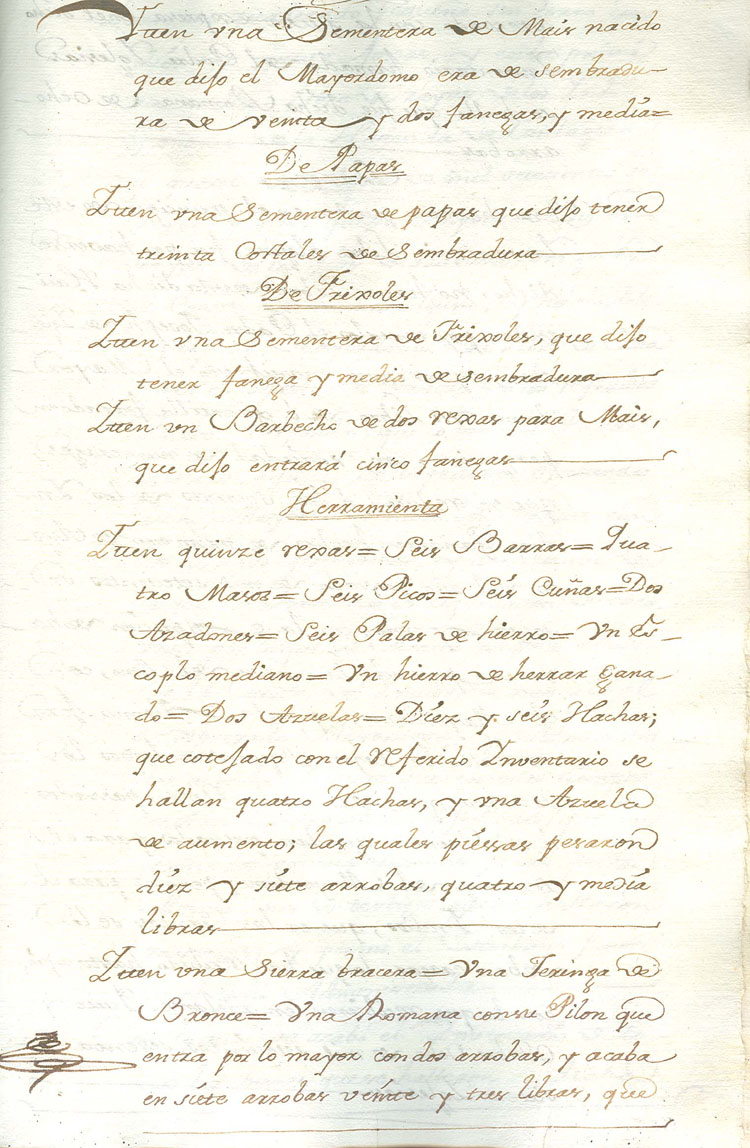 Ytten vna Sementera de Mais nacido
que dixo el Mayordomo era de sembradu-
ra de veinte y dos fanegas, y media=
De Papas
Ytten vna Sementera de papas que dixo tener
treinta Costales de sembradura
De Frixoles
Ytten vna Sementera de Frixoles, que dixo
tener fanega y media de sembradura
Ytten vn Barbecho de dos rexas para Mais,
que dixo entrará cinco fanegas
Herramienta
Ytten quinze rexas= Seis Barras= Qua-
tro Masos= Seis Picos= Seis Cuñas= Dos
Azadones= Seis Palas de hierro= Vn Es-
coplo mediano= Vn hierro de herrar gana-
do= Dos Azuelas= Diez y seis Hachas;
que cotexado con el referido Ynventario se
hallan quatro Hachas, y vna Azuela
de aumento; las quales piessas pesaron
diez y siete arrobas, quatro y media
libras
Ytten vna Sierra bracera= Vna Jeringa de
Bronce= Vna Romana con su Pilon que
entra por lo mayor con dos arrobas, y acaba
en siete arrobas veinte y tres libras, que